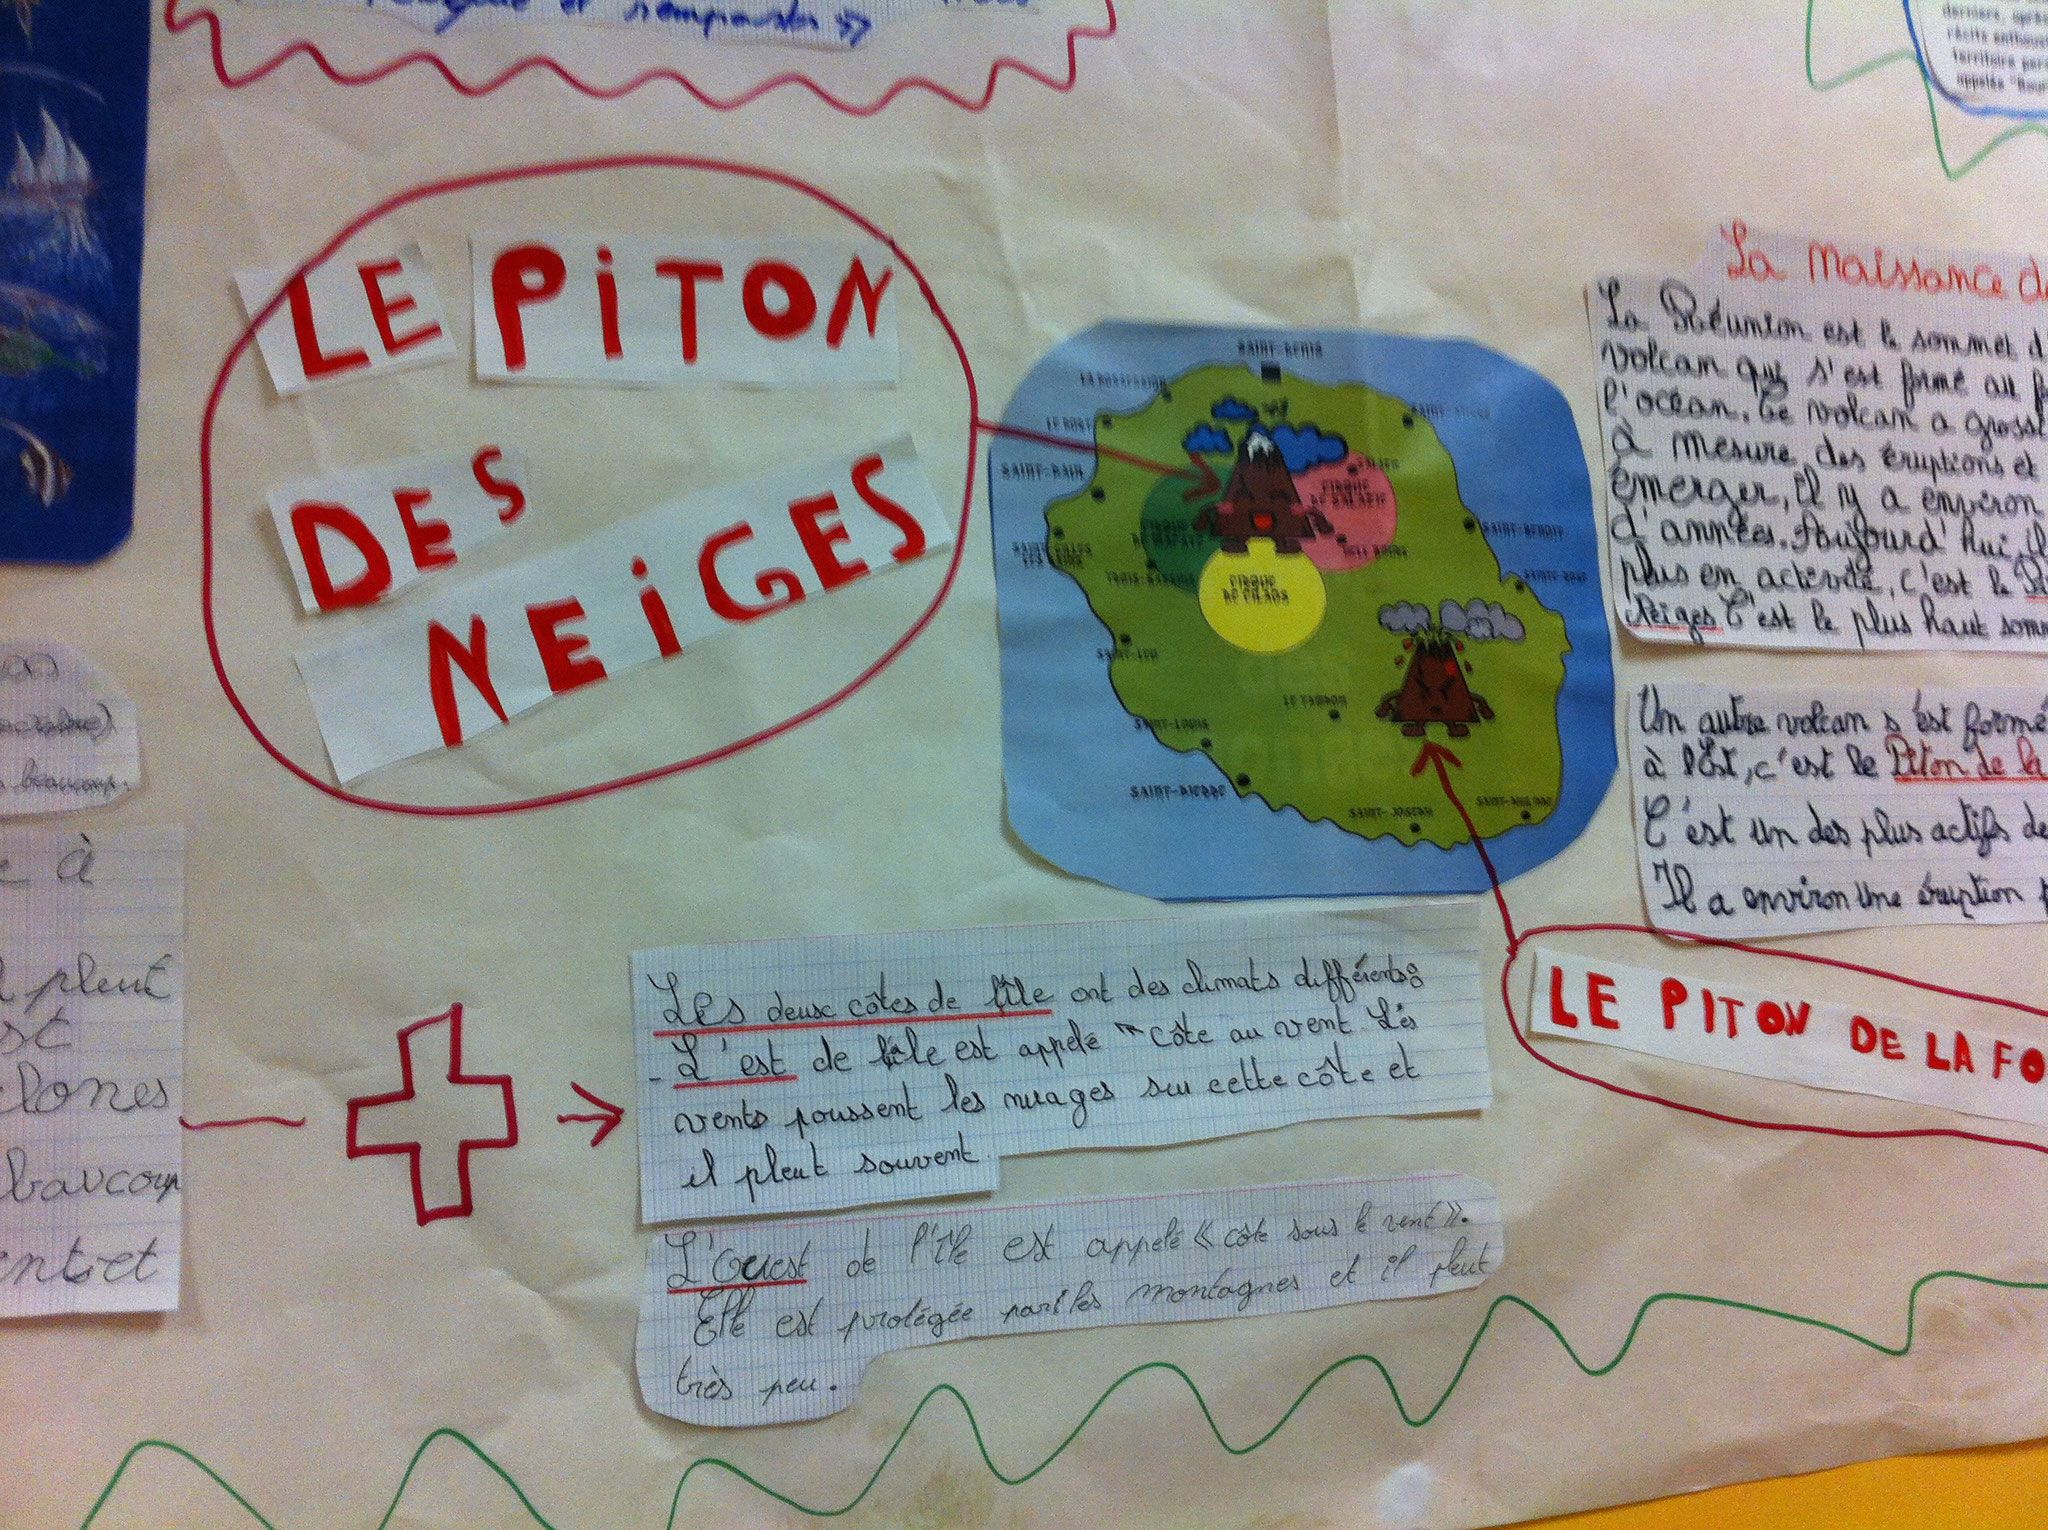 et remparts
derniers, après
territoire
appelés
LE PITON
DES
NEIGES
SAINT-DENIS
LA POSSESSION
LE PORT
SAINT-PAUL
SALAZIE
CIRQUE
DE SALAZIE
CIRQUE
DE MAFATE
SAINT-BENOIT
HELL BOURG
TROIS-BASSINS
SAINTE-ROSE
CIRQUE
DE CILAOS
SAINT-LEU
LE TAMPON
SAINT-LOUIS
SAINT-PIERRE
SAINT-JOSEPH
SAINT-PHILIPPE
La naissance de
La Réunion est le sommet d
volcan qui s'est formé au f
l'océan. Ce volcan a grossi
à mesure des éruptions et
émerger, il y a environ
d'années. Aujourd'hui, il
plus en activité, c'est le Pi
Neiges C'est le plus haut somm
Un autre volcan s'est formé
à l'Est, c'est le Piton de la
C'est un des plus actifs de
Il a environ une éruption p
LE PITON DE LA FO
beaucoup.
e à
l pleut
st
clones
beaucoup
ent et
Les deux côtes de l'île ont des climats différents:
- L'est de l'île est appelé "côte au vent. Les
vents poussent les nuages sur cette côte et
il pleut souvent
L'Ouest de l'île est appelé « côte sous le vent ».
Elle est protégée par les montagnes et il pleut
très peu.